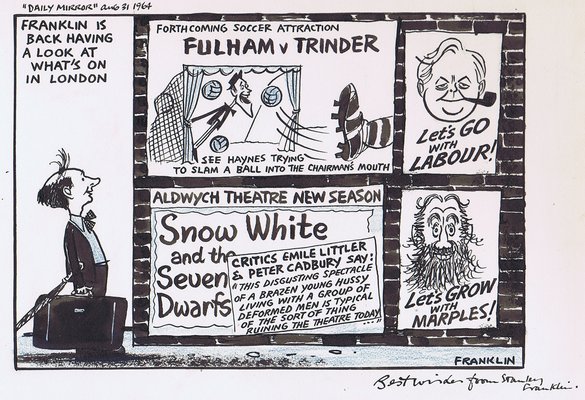 "DAILY MIRROR" AUG 31 1964
FRANKLIN IS
BACK HAVING
A LOOK AT
WHAT'S ON
IN LONDON
FORTHCOMING SOCCER ATTRACTION
FULHAM v TRINDER
SEE HAYNES TRYING
TO SLAM A BALL INTO THE CHAIRMAN'S MOUTH
Let's GO
WITH
LABOUR!
ALDWYCH THEATRE NEW SEASON
Snow White
and the
Seven
Dwarfs
CRITICS EMILE LITTLER
& PETER CADBURY SAY:
"THIS DISGUSTING SPECTACLE
OF A BRAZEN YOUNG HUSSY
LIVING WITH A GROUP OF
DEFORMED MEN IS TYPICAL
OF THE SORT OF THING
RUINING THE THEATRE TODAY
...."
Let's GROW
WITH
MARPLES!
FRANKLIN
Best wishes from Stanley
Franklin.